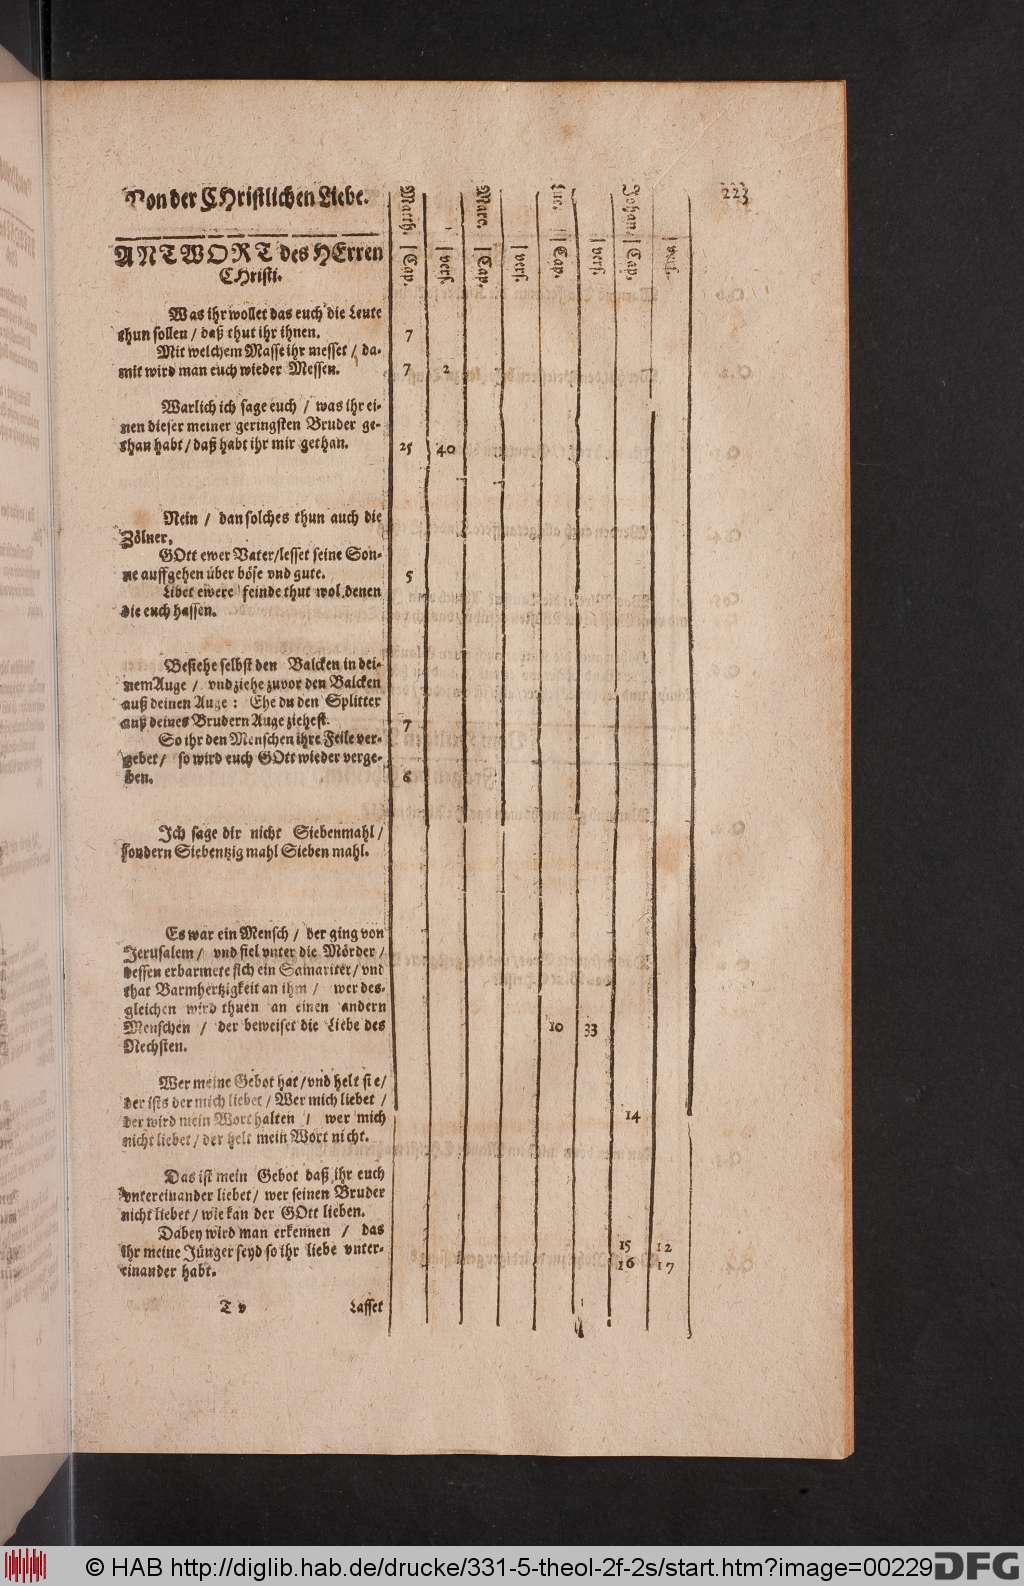 Von der CHristlichen Liebe.
Matth. Marc. Luc. Johan.
223
Cap. vers. Cap. vers. Cap. vers. Cap. vers.
ANTWORT des HErren
CHristi.
Was ihr wollet das euch die Leute
thun sollen / daß thut ihr ihnen. 7
Mit welchem Masse ihr messet / da-
mit wird man euch wieder Messen. 7 2
Warlich ich sage euch / was ihr ei-
nen dieser meiner geringsten Bruder ge-
than habt / daß habt ihr mir gethan. 25 40
Nein / dan solches thun auch die
Zölner,
GOtt ewer Vater/lesset seine Son-
ne auffgehen über böse vnd gute. 5
Libet ewere feinde thut wol denen
die euch hassen.
Besiehe selbst den Balcken in dei-
nem Auge / vnd ziehe zuvor den Balcken
auß deinen Auge : Ehe du den Splitter
auß deines Brudern Auge ziehest. 7
So ihr den Menschen ihre Feile ver-
gebet / so wird euch GOtt wieder verge-
ben. 6
Ich sage dir nicht Siebenmahl /
sondern Siebentzig mahl Sieben mahl.
Es war ein Mensch / der ging von
Jerusalem / vnd fiel vnter die Mörder /
dessen erbarmete sich ein Samariter / vnd
that Barmhertzigkeit an ihm / wer des-
gleichen wird thuen an einen andern
Menschen / der beweiset die Liebe des 10 33
Nechsten.
Wer meine Gebot hat / vnd helt sie /
der ists der mich liebet / Wer mich liebet /
der wird mein Wort halten / wer mich 14
nicht liebet / der helt mein Wort nicht.
Das ist mein Gebot daß ihr euch
vntereinander liebet / wer seinen Bruder
nicht liebet / wie kan der GOtt lieben.
Dabey wird man erkennen / das
Ihr meine Jünger seyd so ihr liebe vnter- 15 12
einander habt. 16 17
T v Lasset
© HAB http://diglib.hab.de/drucke/331-5-theol-2f-2s/start.htm?image=00229
DFG